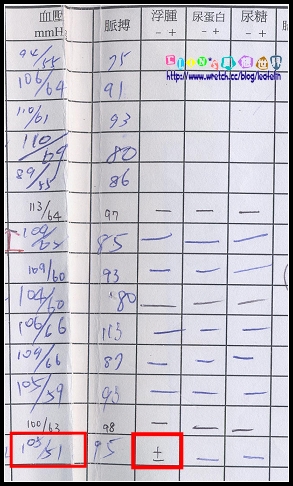 血壓 脈搏 浮腫 尿蛋白 尿糖
mmHg - + - + - +
http://www.wretch.cc/blog/leofelin
94/55 75
106/64 91
110/61 93
110/ 80
89/55 86
113/64 97 — — —
85 — — —
109/60 93 — — —
104/60 80 — — —
106/66 113 — — —
109/66 87 — — —
105/59 93 — — —
100/63 98 — — —
105/51 95 ± — —